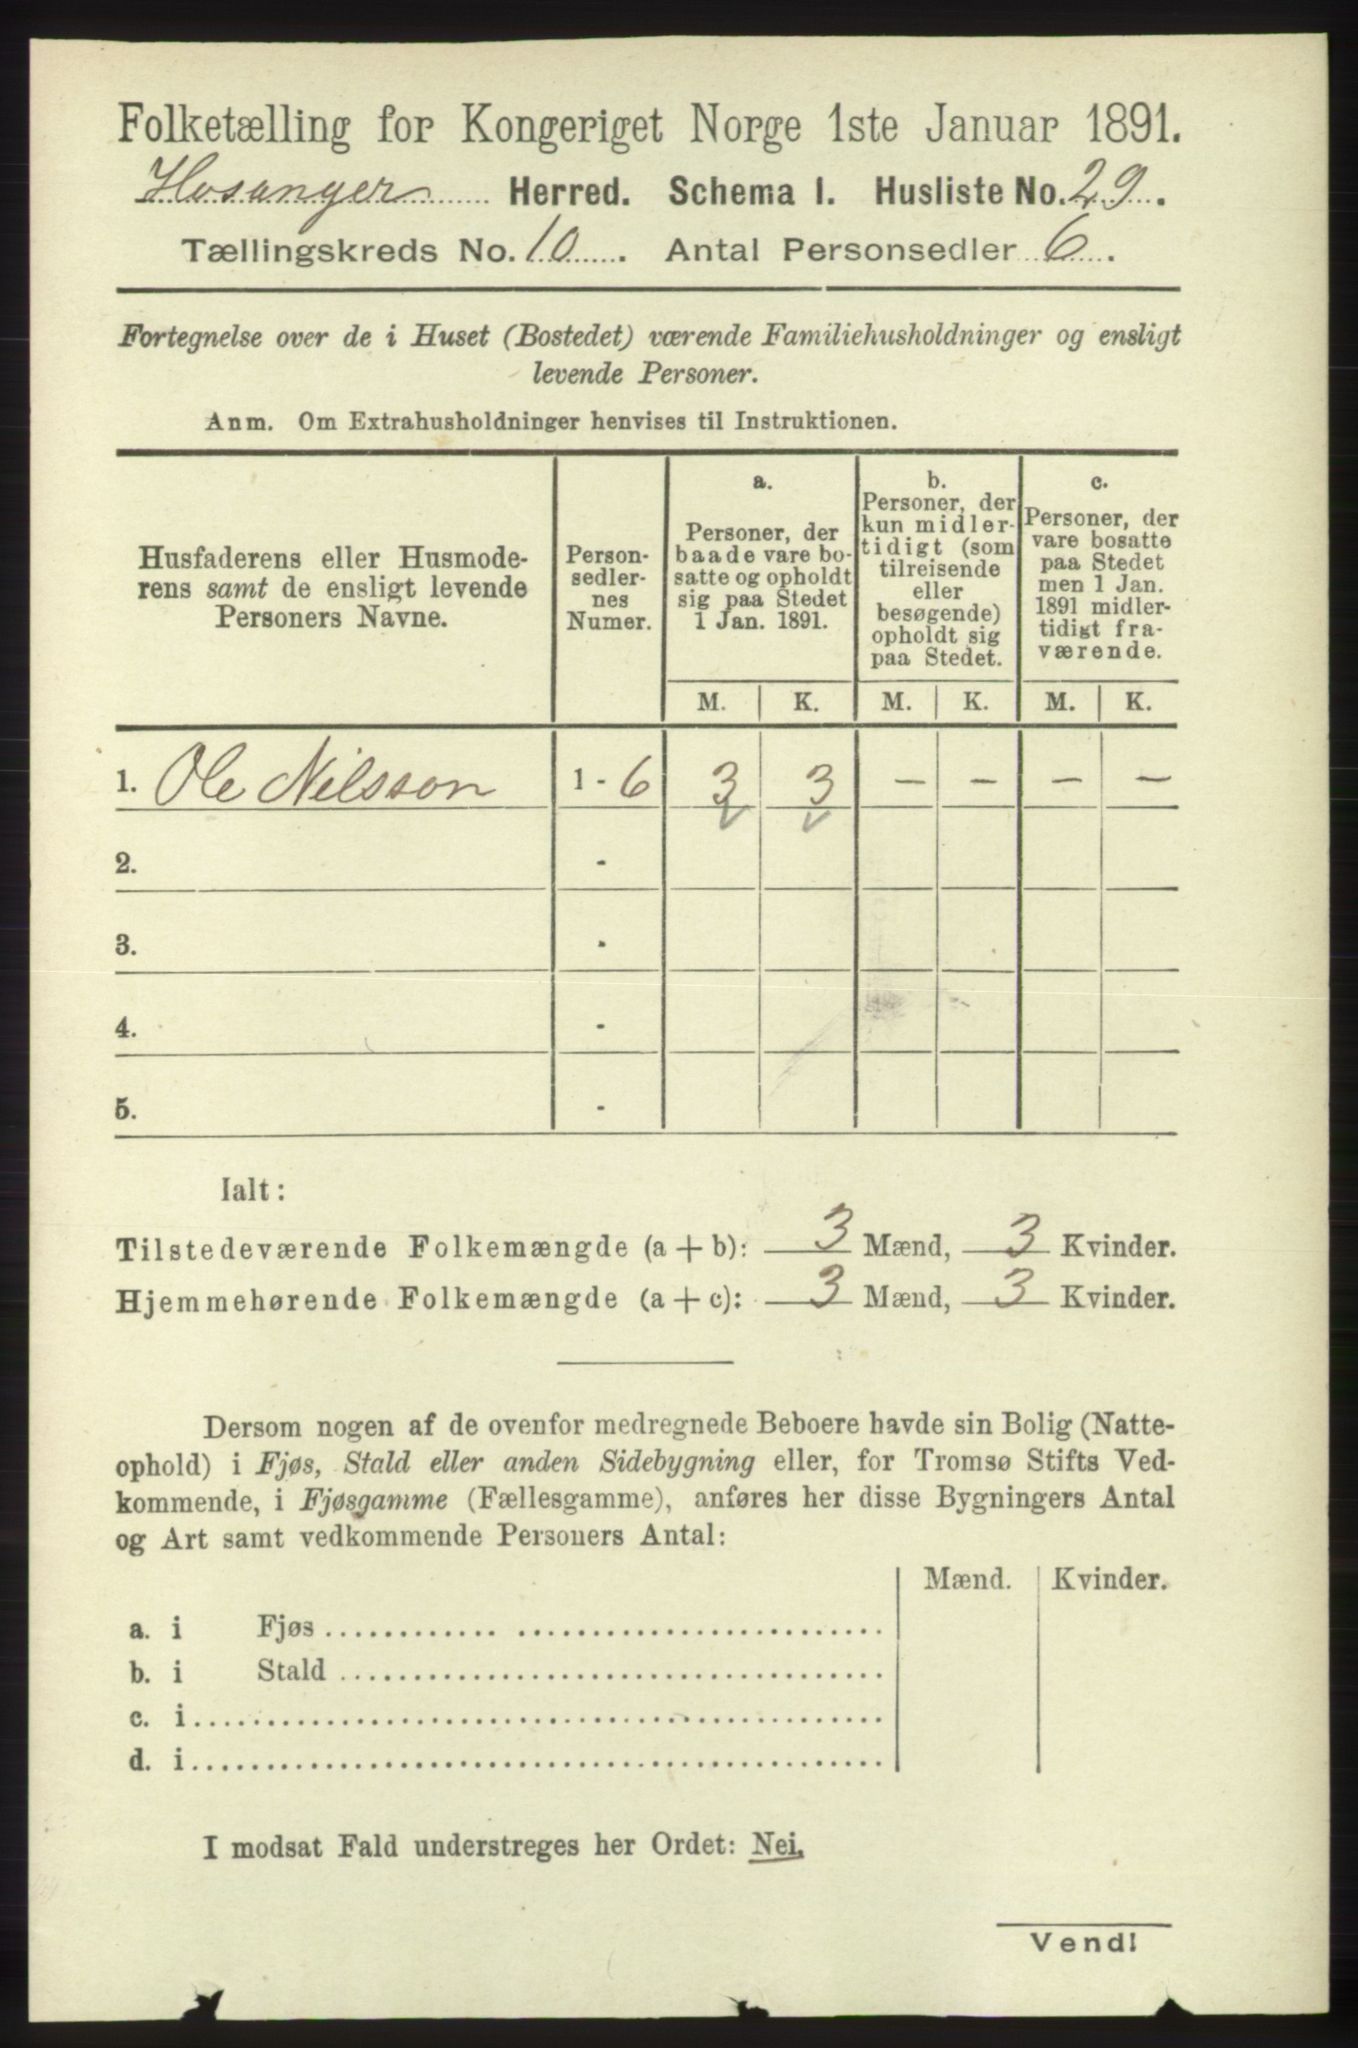 Folketælling for Kongeriget Norge 1ste Januar 1891.
Hosanger Herred. Schema I. Husliste No. 29.
Tællingskreds No. 10. Antal Personsedler 6.
Fortegnelse over de i Huset (Bostedet) værende Familiehusholdninger og ensligt
levende Personer.
Anm. Om Extrahusholdninger henvises til Instruktionen.
Husfaderens eller Husmode-
rens samt de ensligt levende
Personers Navne.
Person-
sedler-
nes
Numer.
a.
Personer, der
baade vare bo-
satte og opholdt
sig paa Stedet
1 Jan. 1891.
b.
Personer, der
kun midler-
tidigt (som
tilreisende
eller
besøgende)
opholdt sig
paa Stedet.
c.
Personer, der
vare bosatte
paa Stedet
men 1 Jan.
1891 midler-
tidigt fra-
værende.
M. K. M. K. M. K.
1. Ole Nilsson 1 - 6 3 3 - - - -
2. -
3. -
4. -
5. -
Ialt:
Tilstedeværende Folkemængde (a + b): 3 Mænd, 3 Kvinder.
Hjemmehørende Folkemængde (a + c): 3 Mænd, 3 Kvinder.
Dersom nogen af de ovenfor medregnede Beboere havde sin Bolig (Natte-
ophold) i Fjøs, Stald eller anden Sidebygning eller, for Tromsø Stifts Ved-
kommende, i Fjøsgamme (Fællesgamme), anføres her disse Bygningers Antal
og Art samt vedkommende Personers Antal:
Mænd. Kvinder.
a. i Fjøs
b. i Stald
c. i
d. i
I modsat Fald understreges her Ordet: Nei.
Vend!